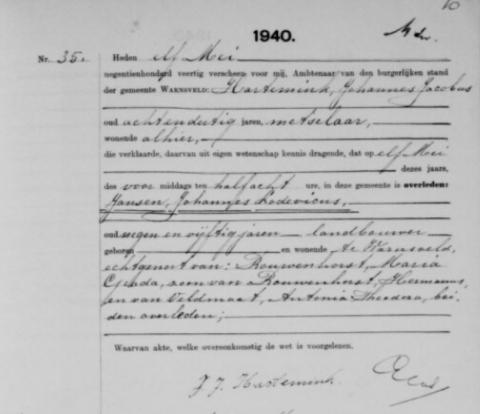 10
1940.
Nr. 35.
Heden elf Mei
negentienhonderd veertig verscheen voor mij, Ambtenaar van den burgerlijken stand
der gemeente WARNSVELD: Hartemink, Johannes Jacobus
oud achtendertig jaren, metselaar,
wonende alhier,
die verklaarde, daarvan uit eigen wetenschap kennis dragende, dat op elf Mei
dezes jaars,
des voor middags ten halfacht ure, in deze gemeente is overleden:
Jansen, Johannes Lodevicus,
oud negen en vijftig jaren landbouwer
geboren en wonende te Warnsveld,
echtgenoot van: Rouwenhorst, Maria
zoon van Rouwenhorst, Hermanus,
en van Veldmaat, Antonia Theodora, bei-
den overleden;
Waarvan akte, welke overeenkomstig de wet is voorgelezen.
J. J. Hartemink.